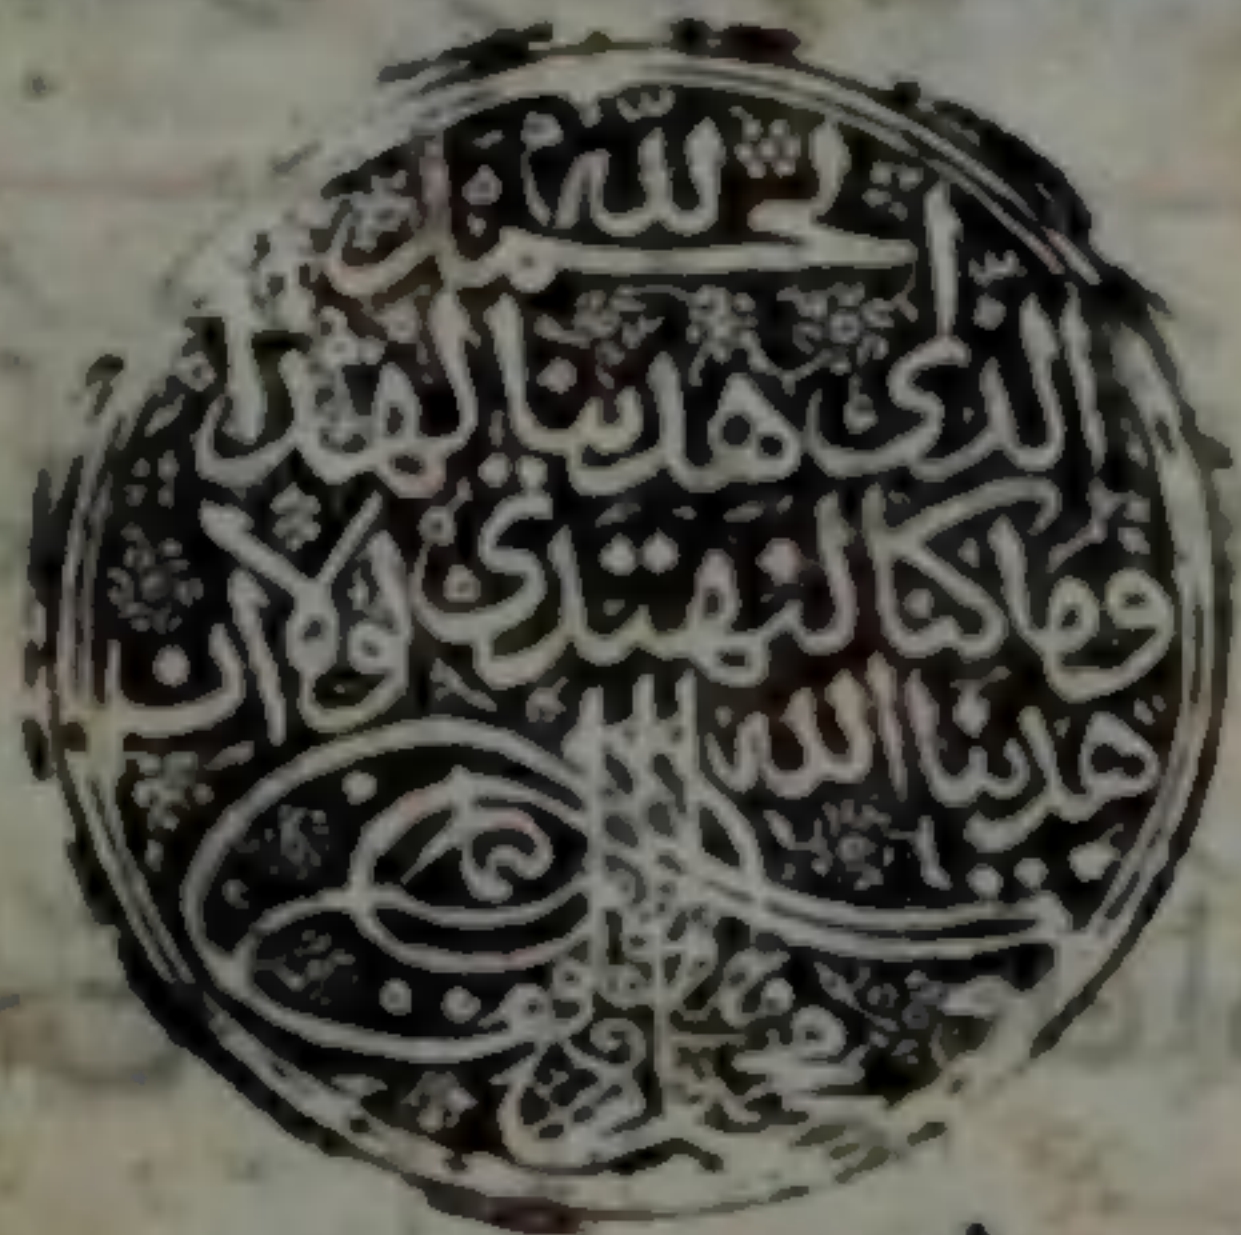 الحمد لله
الذى هدینا لهذا
وما كنا لنهتدى لولا ان
هدینا الله